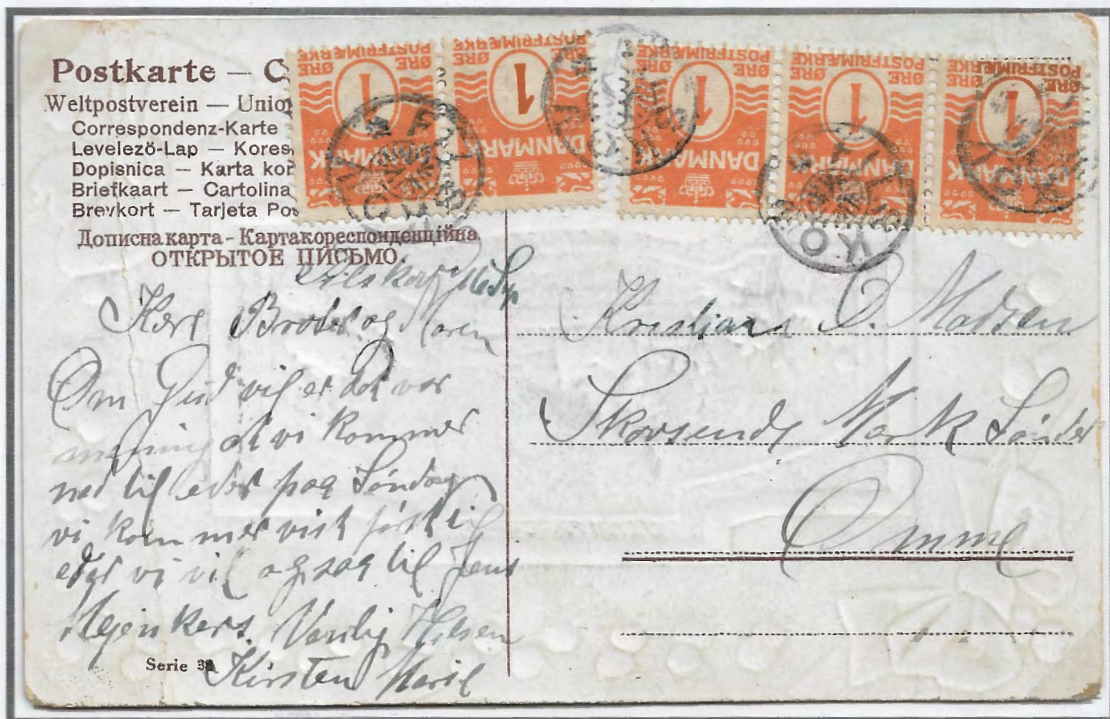 Postkarte — C
Weltpostverein — Unio
Correspondenz-Karte
Levelező-Lap — Kores
Dopisnica — Karta kor
Briefkaart — Cartolina
Brevkort — Tarjeta Pos
Дописна карта - Карта кореспонденційна
ОТКРЫТОЕ ПИСЬМО.
POSTFRIMÆRKE
1 ØRE
DANMARK
POSTFRIMÆRKE
1 ØRE
DANMARK
POSTFRIMÆRKE
1 ØRE
DANMARK
POSTFRIMÆRKE
1 ØRE
DANMARK
POSTFRIMÆRKE
1 ØRE
DANMARK
Kere Broder og Maren
Om Gud vil er det vor
mening at vi kommer
ned til eder paa Søndag
vi kommer vist først til
eder vi vil ogsaa til Jens
Venlig Hilsen
Kirsten Marie
Serie
Kristian C. Madsen
Skovsende Mark Sønder
Omme